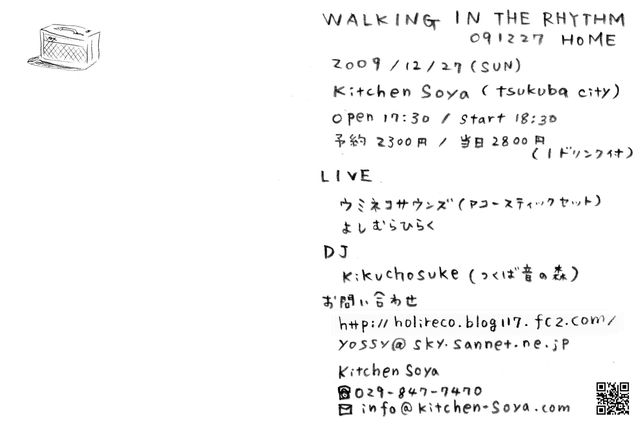 WALKING IN THE RHYTHM
091227 HOME
2009/12/27(SUN)
Kitchen Soya (tsukuba city)
open 17:30 / start 18:30
予約 2300円 / 当日 2800円
(1ドリンク付)
LIVE
ウミネコサウンズ(アコースティックセット)
よしむらひらく
DJ
Kikuchosuke (つくば音の森)
お問い合わせ
http://holireco.blog117.fc2.com/
yossy@sky.sannet.ne.jp
Kitchen Soya
☎029-847-7470
✉info@kitchen-soya.com